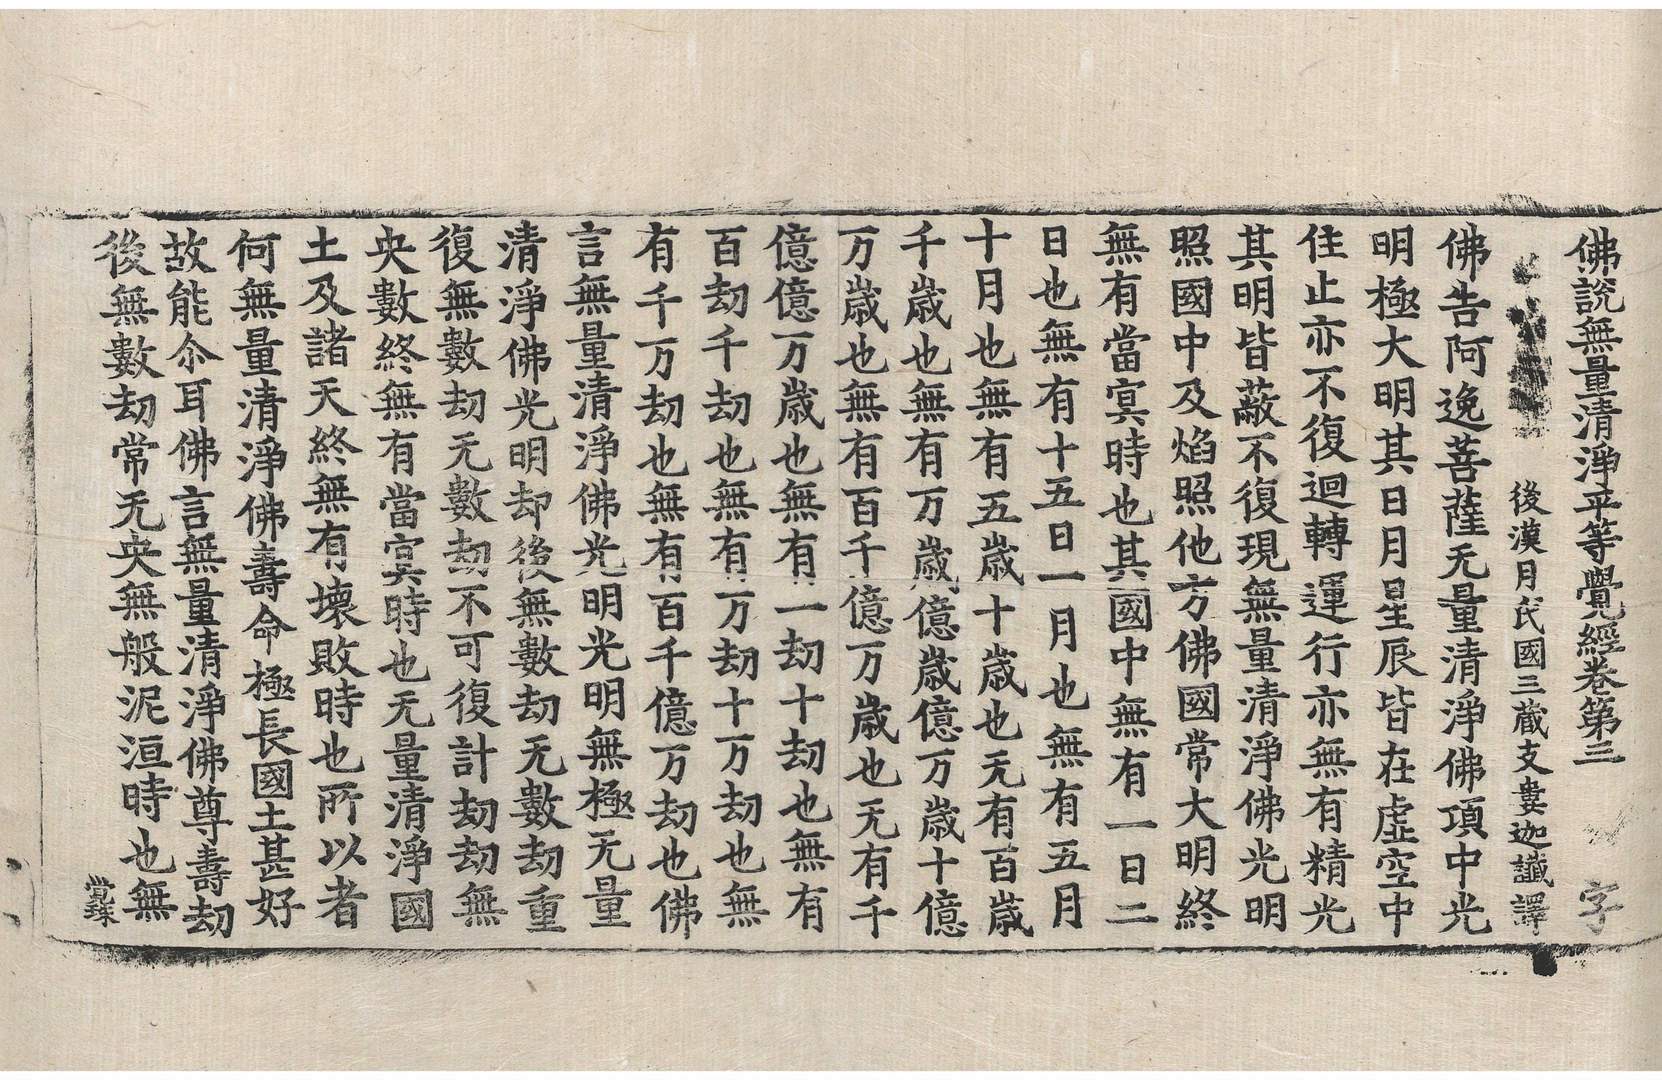 佛說無量清淨平等覺經卷第三 字
後漢月氏國三藏支婁迦讖譯
佛告阿逸菩薩无量清淨佛項中光
明極大明其日月星辰皆在虛空中
住止亦不復迴轉運行亦無有精光
其明皆蔽不復現無量清淨佛光明
照國中及焰照他方佛國常大明終
無有當冥時也其國中無有一日二
日也無有十五日一月也無有五月
十月也無有五歲十歲也无有百歲
千歲也無有万歲億歲億万歲十億
万歲也無有百千億万歲也无有千
億億万歲也無有一劫十劫也無有
百劫千劫也無有万劫十万劫也無
有千万劫也無有百千億万劫也佛
言無量清淨佛光明光明無極无量
清淨佛光明却後無數劫无數劫重
復無數劫无數劫不可復計劫劫無
央數終無有當冥時也无量清淨國
土及諸天終無有壞敗時也所以者
何無量清淨佛壽命極長國土甚好
故能尒耳佛言無量清淨佛尊壽劫
後無數劫常无央無般泥洹時也無